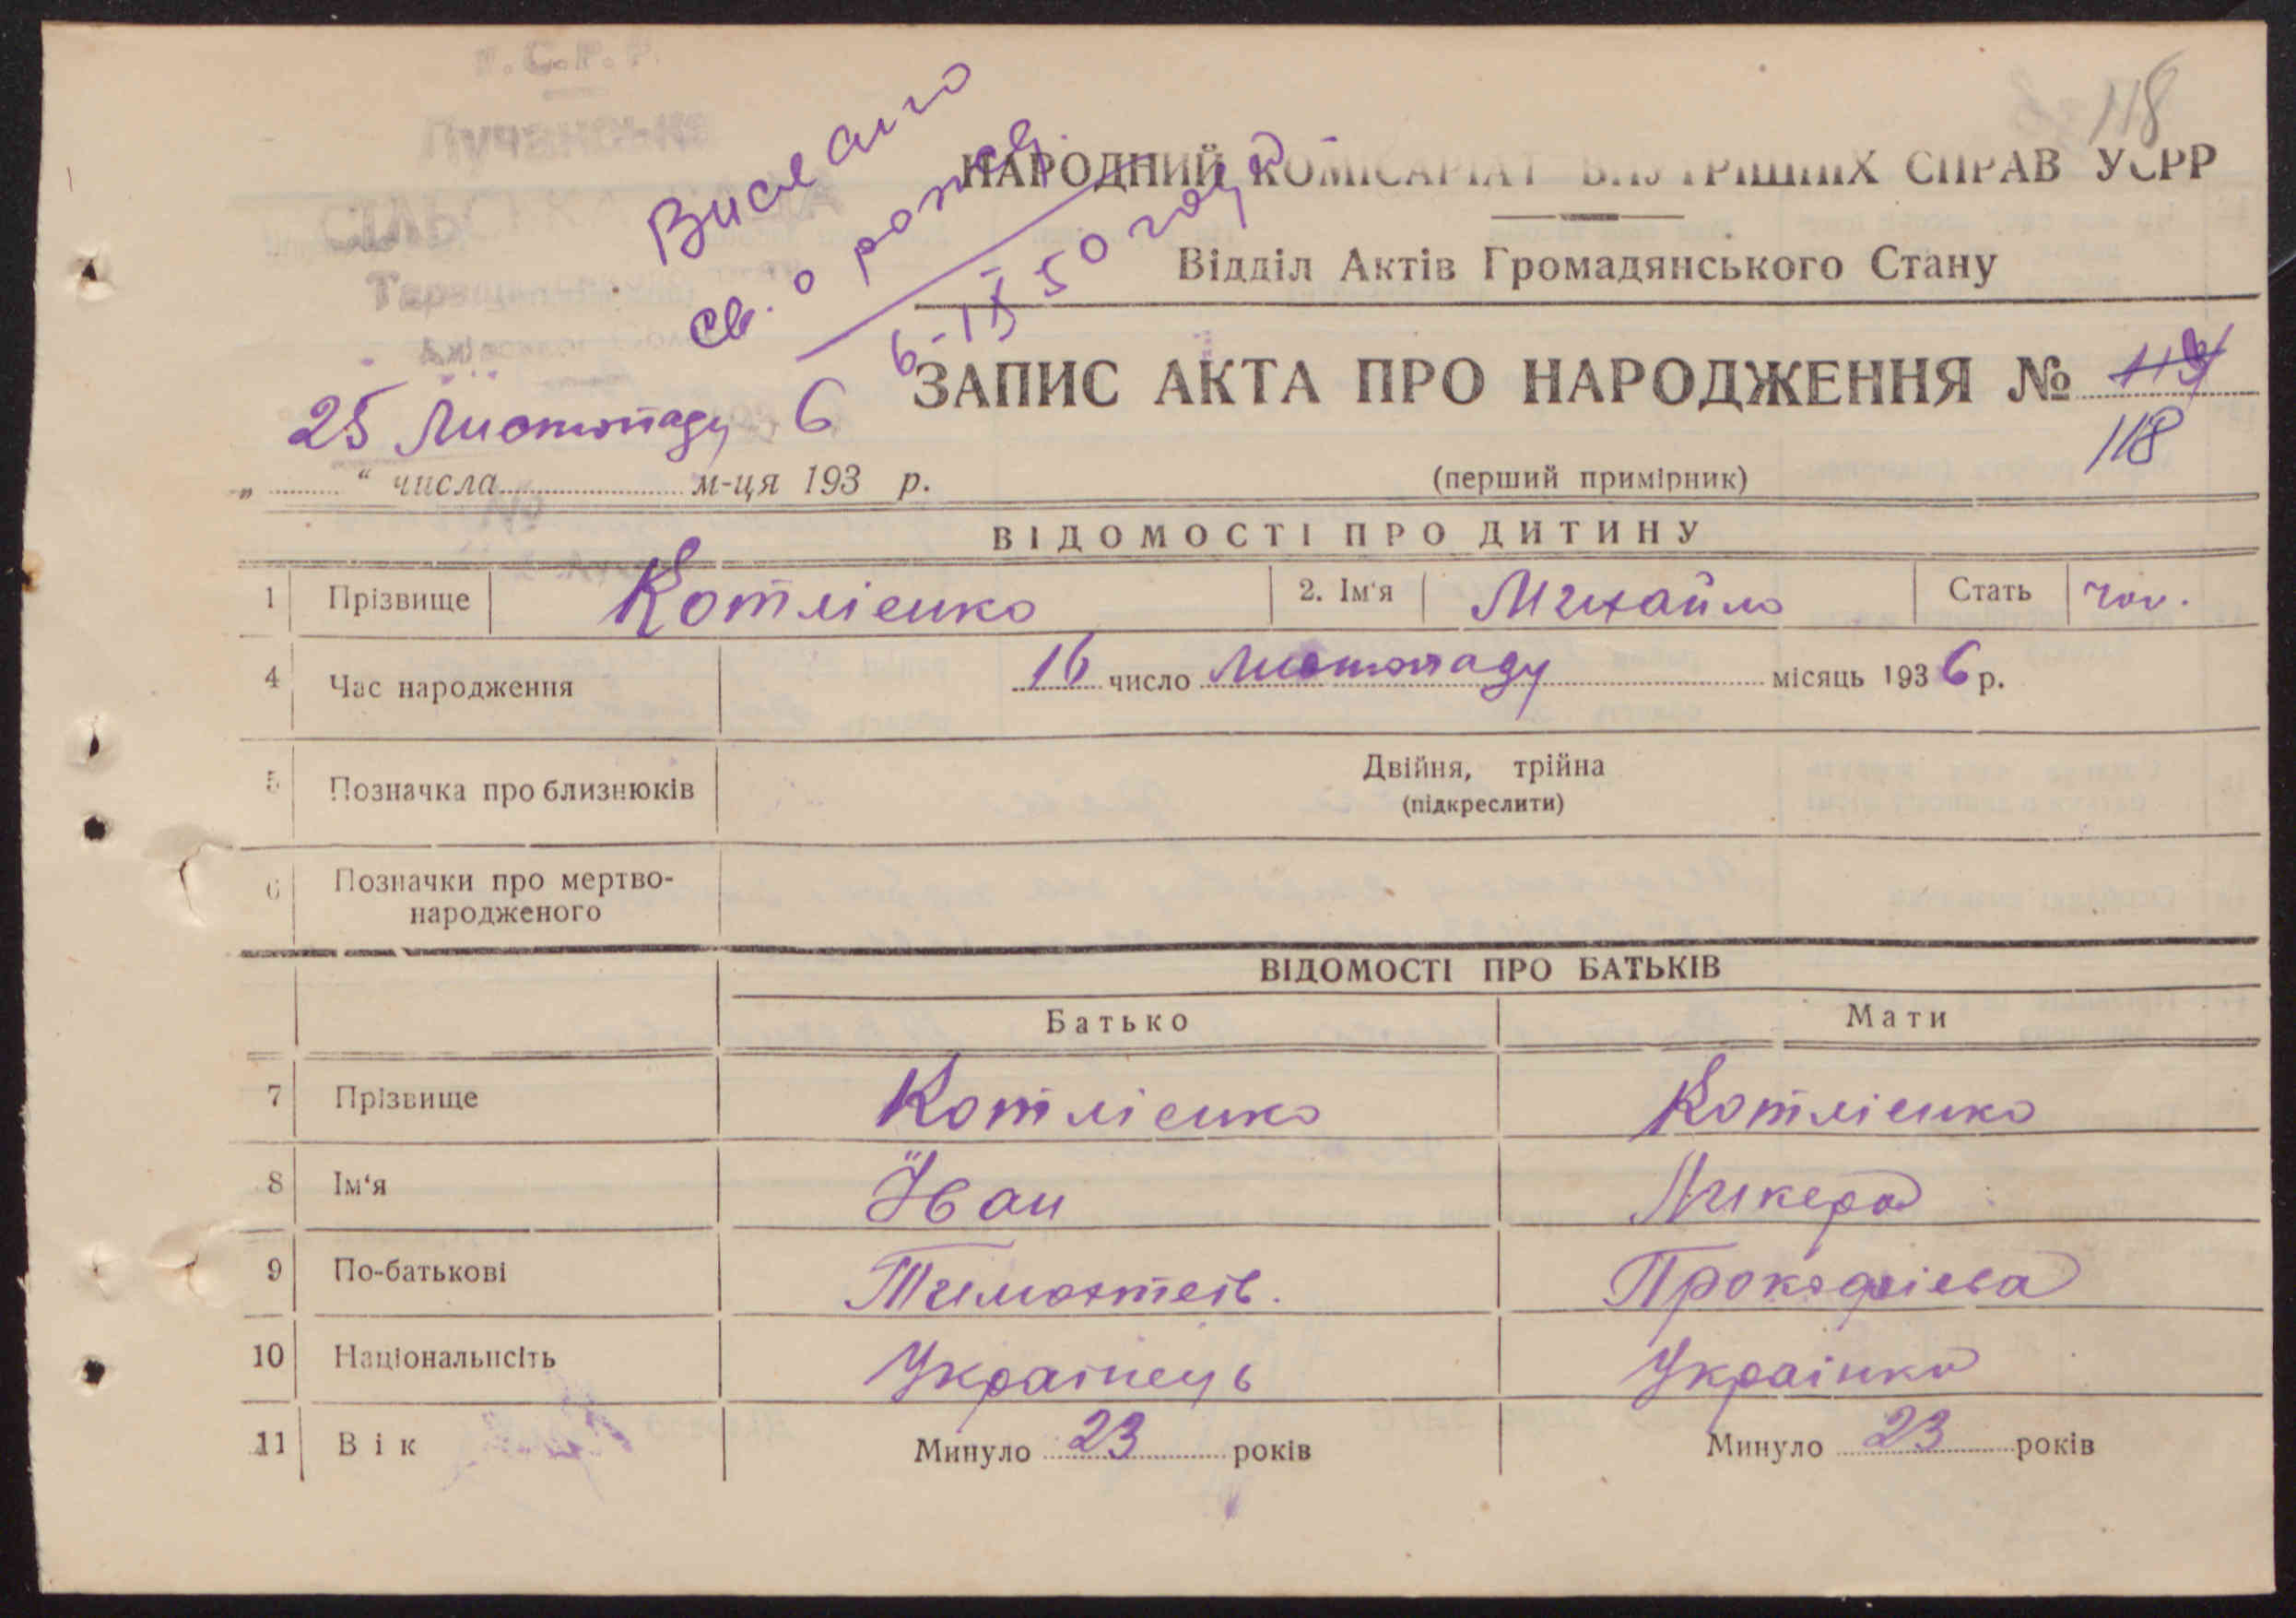 У.С.Р.Р.
Лучанська
СІЛЬСЬКА РАДА
118
Вислано
св. о рожд.
6-IX 50 года
НАРОДНИЙ КОМІСАРІАТ ВНУТРІШНІХ СПРАВ УСРР
Відділ Актів Громадянського Стану
ЗАПИС АКТА ПРО НАРОДЖЕННЯ №
118
25 Листопаду 6
„ “ числа м-ця 193 р.
(перший примірник)
ВІДОМОСТІ ПРО ДИТИНУ
1 Прізвище Котлієнко 2. Ім'я Михайло Стать чол.
4 Час народження 16 число Листопаду місяць 1936 р.
5 Позначка про близнюків Двійня, трійна
(підкреслити)
6 Позначки про мертво-
народженого
ВІДОМОСТІ ПРО БАТЬКІВ
Батько Мати
7 Прізвище Котлієнко Котлієнко
8 Ім‘я Їван Ликера
9 По-батькові Тимохтеїв. Прокофієва
10 Національнсіть Українець Українка
11 Вік Минуло 23 років Минуло 23 років